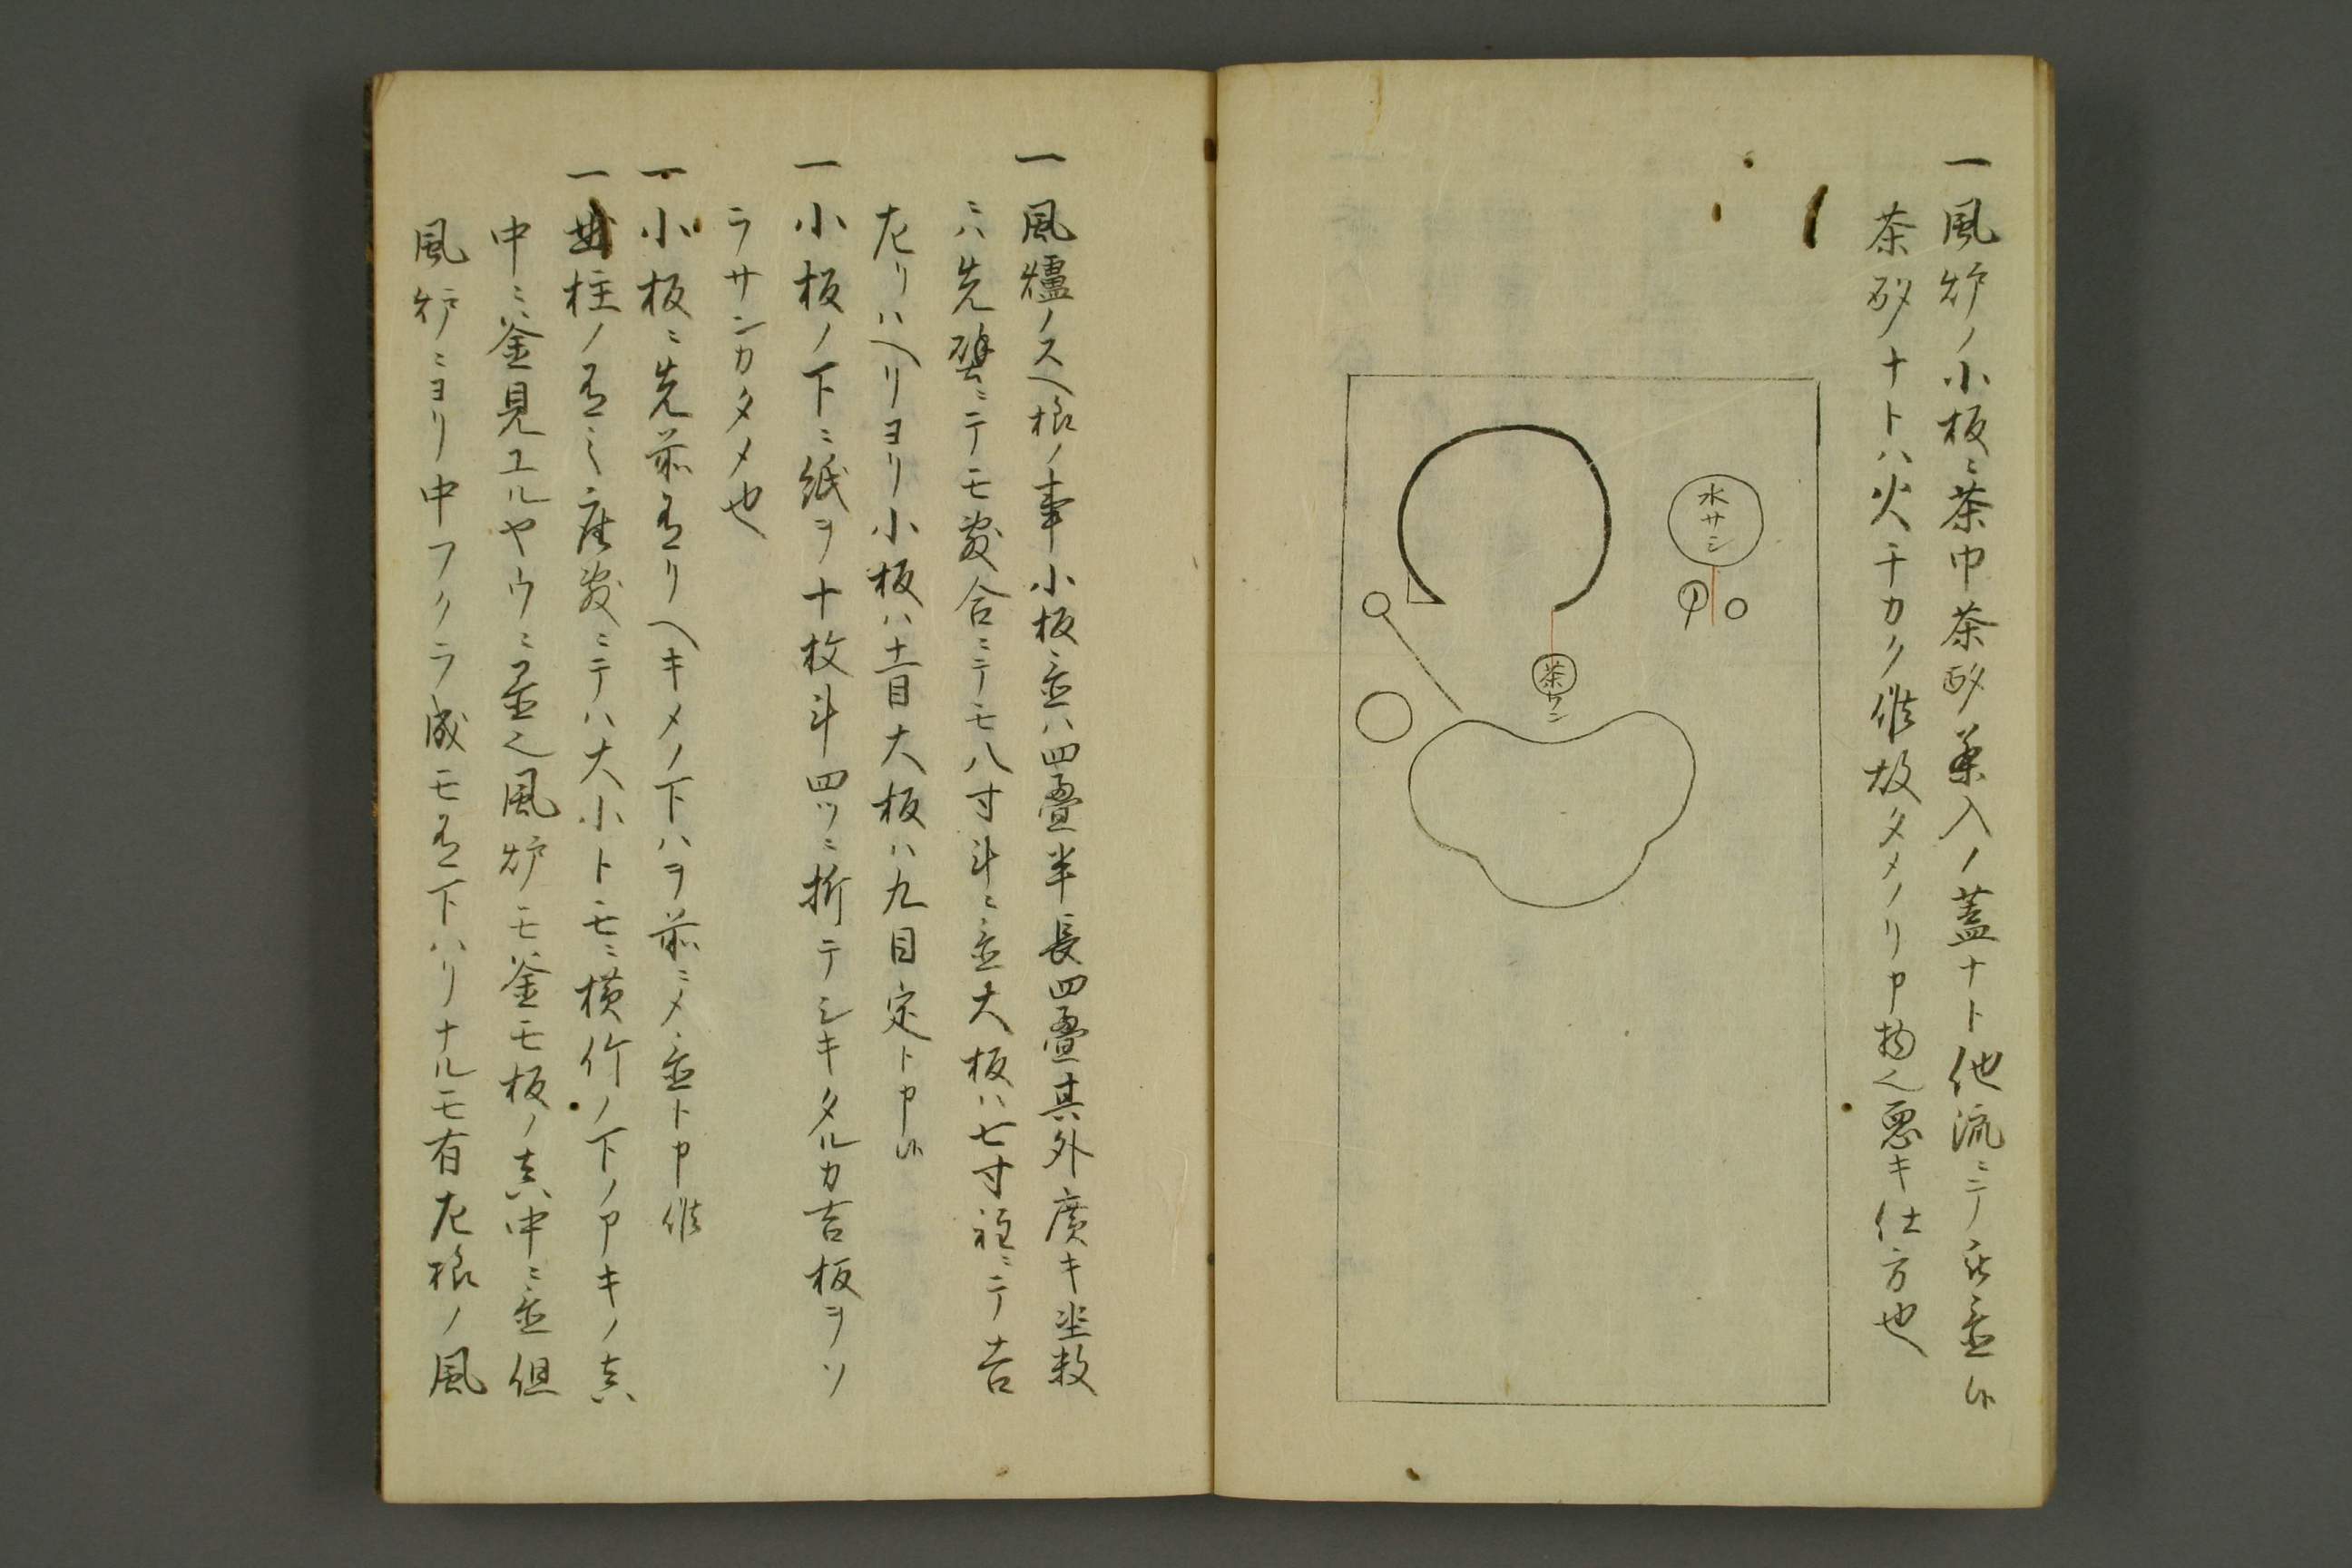 一風炉ノ小板ニ茶巾茶杓茶入ノ蓋ナト他流ニテ置候
茶杓ナトハ火チカク候故タメノリ申物也悪キ仕方也
水サシ
茶ワン
一風爐ノスヘ様ノ事小板ニ置ハ四畳半長四畳其外廣キ坐敷
ニハ先壁ニテモ敷合ニテモ八寸斗ニ置大板ハ七寸程ニテ吉
左リハヘリヨリ小板ハ十一目大板ハ九目定ト申候
一小板ノ下ニ紙ヲ十枚斗四ツニ折テシキタルカ吉板ヲソ
ラサンカタメ也
一小板ニ先前有リヘキメノ下ハヲ前ニメ置ト申候
柱ノ有之座敷ニテハ大小トモニ横竹ノ下ノアキノ真
中ニ釜見エルヤウニ置也風炉モ釜モ板ノ真中ニ置但
風炉ニヨリ中フクラ成モ有下ハリナルモ有左様ノ風